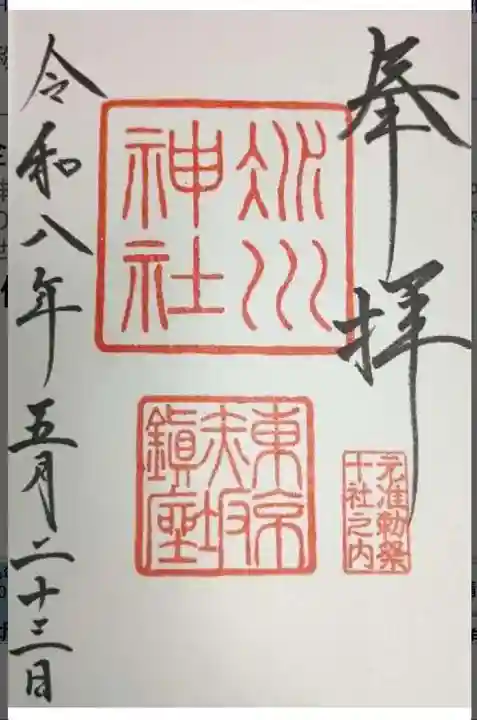 奉拝
元准勅祭
十社之内
冰川
神社
東京
赤坂
鎭座
令和八年五月二十三日